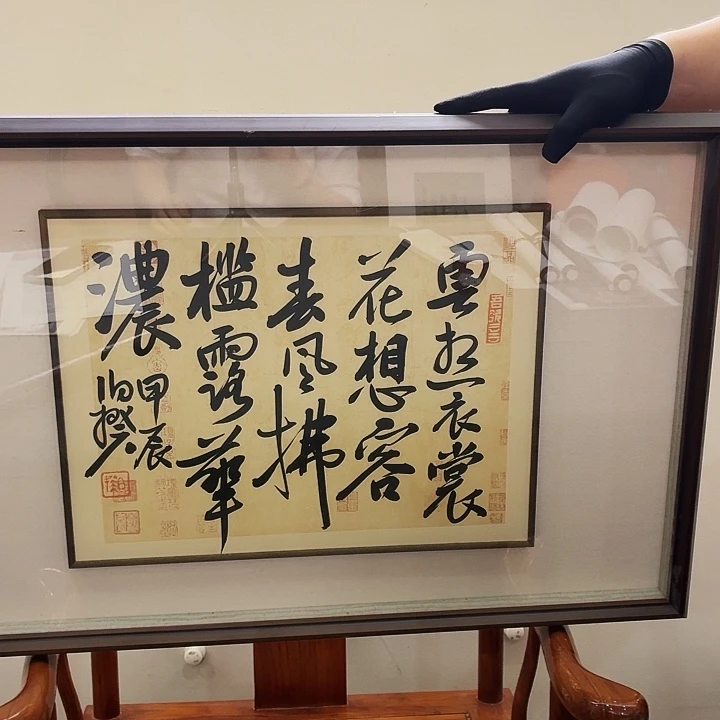 雲想衣裳
花想容
春風拂
檻露華
濃
甲辰